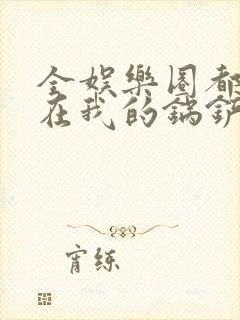 全娛樂圈都
在我的鍋鏟
宵练